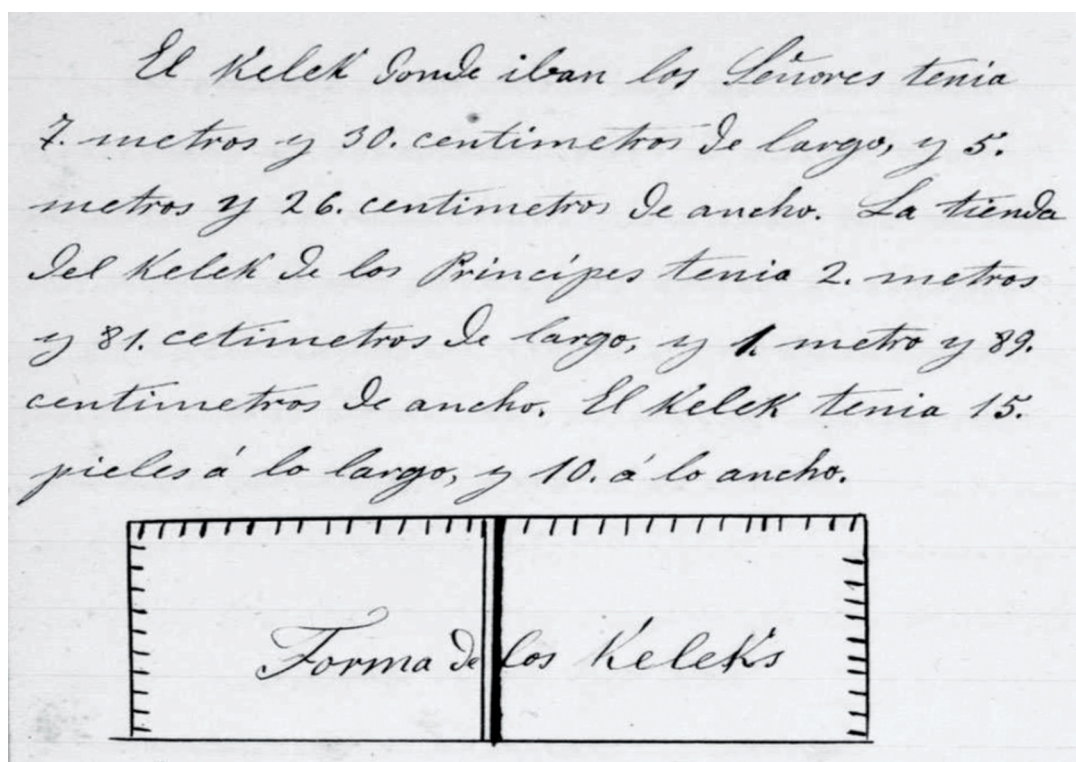 El Kelek donde iban los Señores tenia
7. metros y 30. centimetros de largo, y 5.
metros y 26. centimetros de ancho. La tienda
del Kelek de los Principes tenia 2. metros
y 81. cetimetros de largo, y 1. metro y 89.
centimetros de ancho. El Kelek tenia 15.
pieles á lo largo, y 10. á lo ancho.
Forma de los Keleks